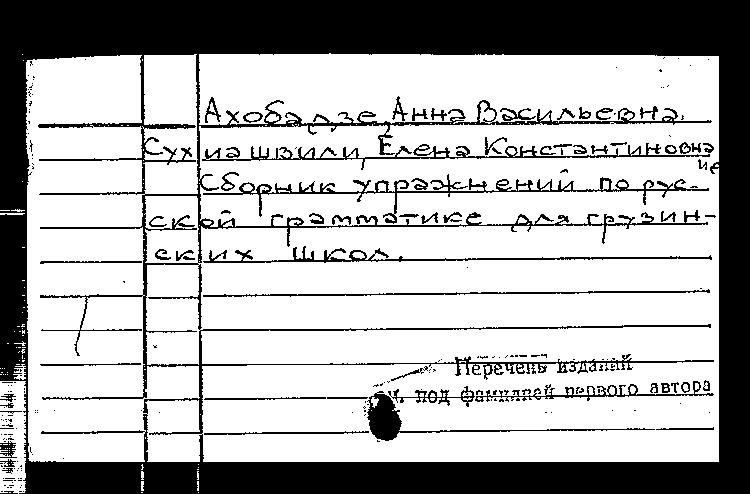 Ахобадзе, Анна Васильевна.
Сухиашвили, Елена Константиновна
Сборник упражнений по рус-
ской грамматике для грузин-
ских школ.
Перечень изданий
см. под фамилией первого автора